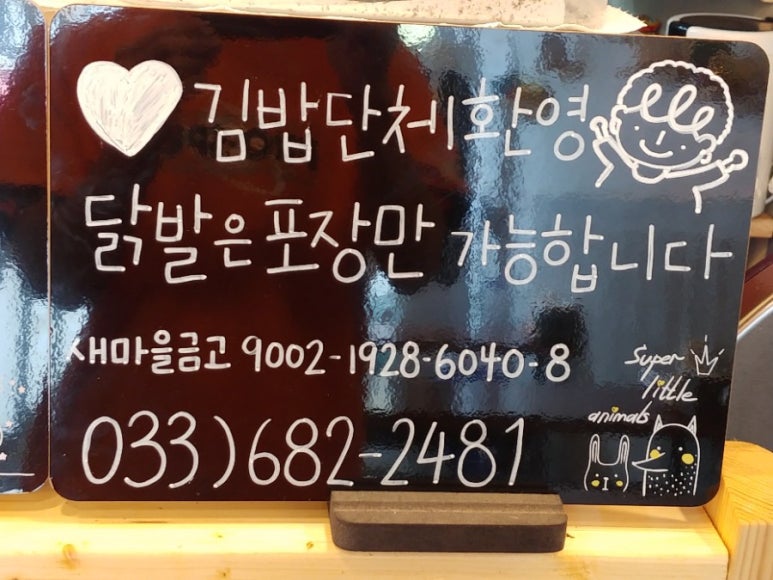 김밥단체환영
닭발은포장만 가능합니다
새마을금고 9002-1928-6040-8
033)682-2481
Super
little
animals